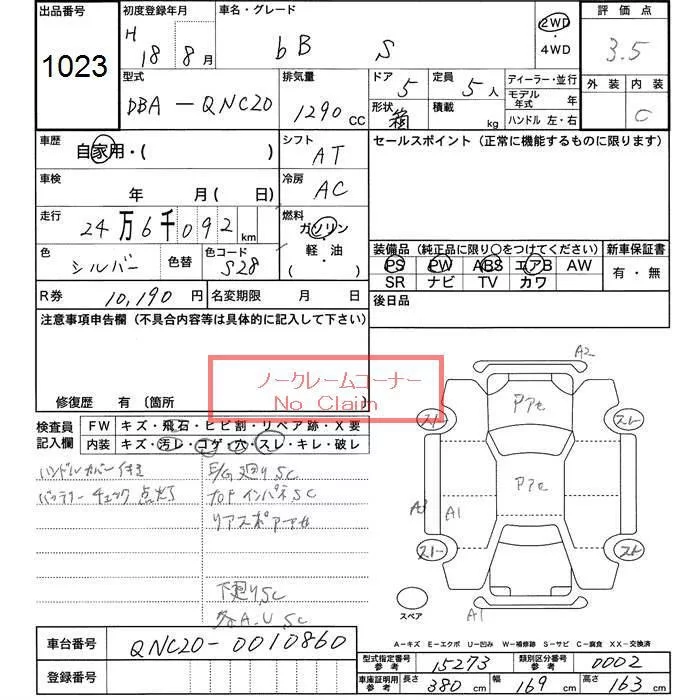 出品番号 初度登録年月 車名・グレード 評価点
1023 H 18 8月 bB S 2WD ・4WD 3.5
型式 排気量 ドア 定員 ディーラー・並行 外装 内装
DBA-QNC20 1290 CC 5 5人 モデル年式 年 C
形状 箱 積載 kg ハンドル 左・右
車歴 自家用・( ) シフト AT セールスポイント (正常に機能するものに限ります)
車検 年 月(日) 冷房 AC
走行 24万6千092km 燃料 ガソリン・軽・油・( )
色 シルバー 色替 色コード S28
装備品 (純正品に限り○をつけてください) 新車保証書
PS PW ABS エアB AW 有・無
SR ナビ TV カワ
R券 10,190円 名変期限 月 日 後日品
注意事項申告欄 (不具合内容等は具体的に記入して下さい)
ノークレームコーナー
No Claim
修復歴 有 〔箇所
検査員記入欄 FW キズ・飛石・ヒビ割・リペア跡・X要
内装 キズ・汚レ・コゲ・穴・スレ・キレ・破レ
ハンドルカバー付き E/G廻りSC
バッテリーチェック点灯 フロントインパネSC
リアスポアセ
下廻りSC
各A.U SC
A2
アアセ
スレ スレ
アアセ
A3 A1
スレ スレ
スペア A1
A-キズ E-エクボ U-凹み W-補修跡 S-サビ C-腐食 XX-交換済
車台番号 QNC20-0010860
型式指定番号参考 15273 類別区分番号参考 0002
登録番号
車庫証明用参考 長さ 380cm 幅 169cm 高さ 163cm